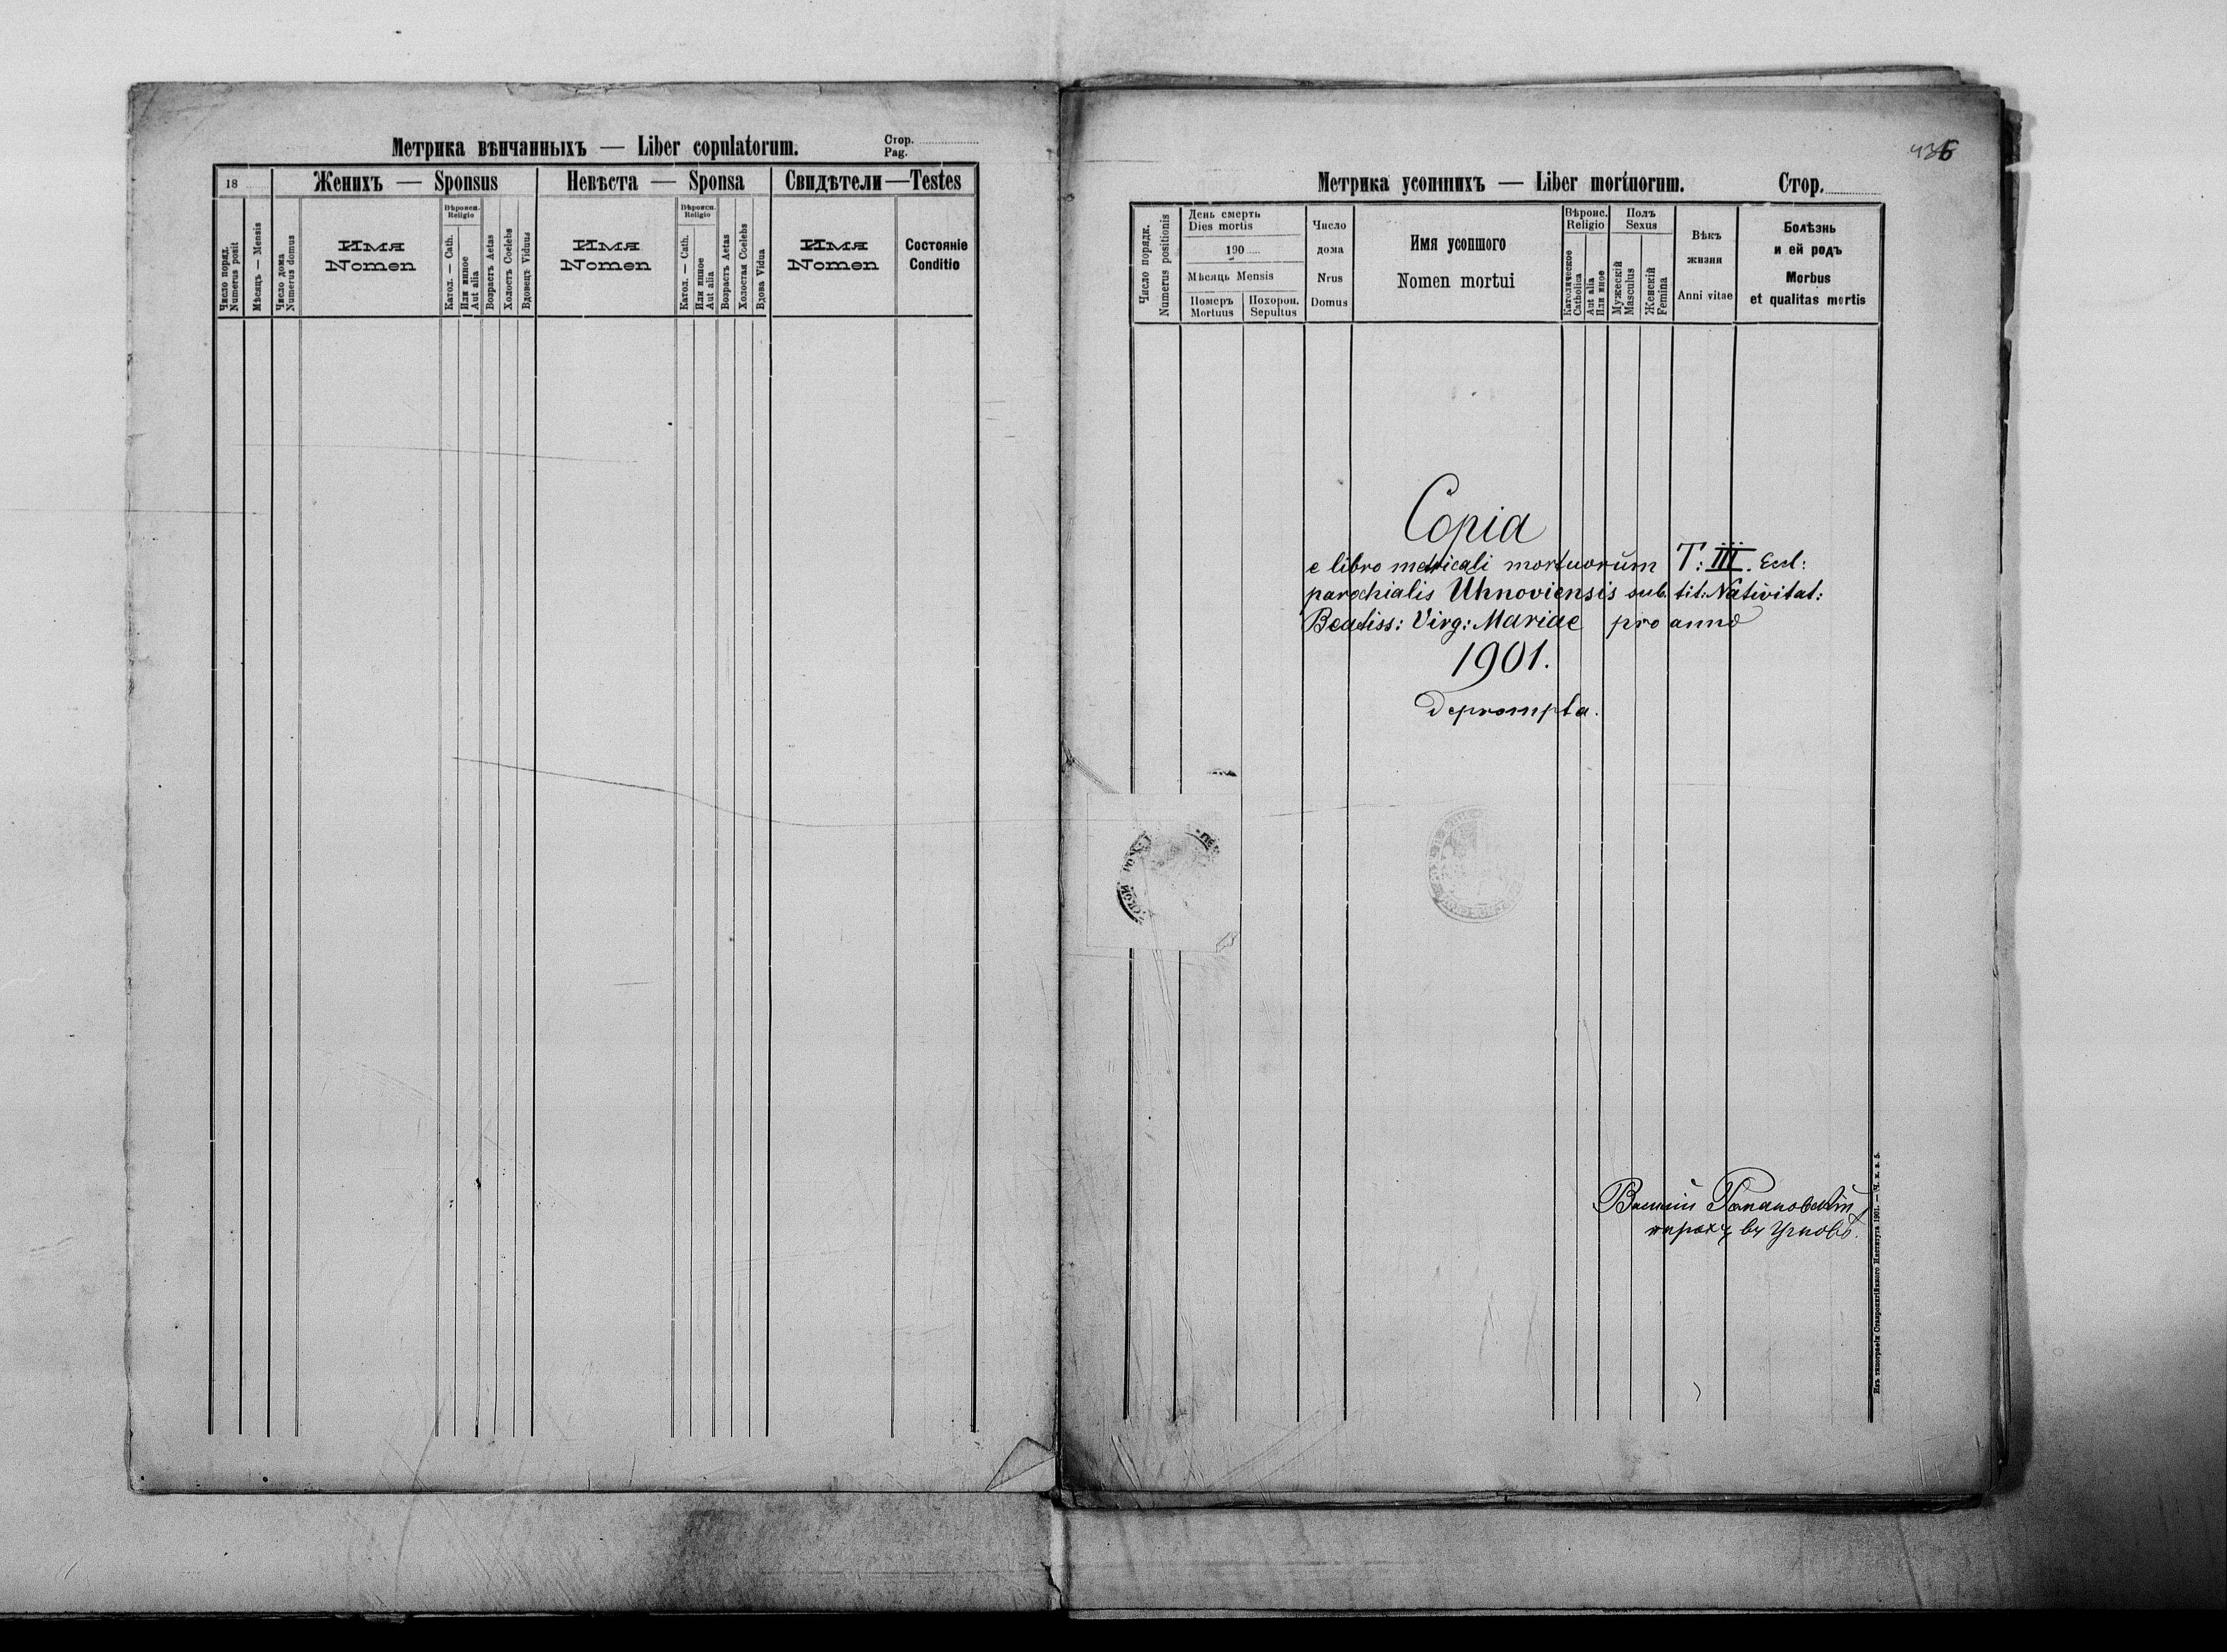 Метрика вѣнчанныхъ — Liber copulatorum.
Стор.
Pag.
18
Женихъ — Sponsus
Невѣста — Sponsa
Свидѣтели — Testes
Число поряд.
Numerus posit
Мѣсяць — Mensis
Число дома
Numerus domus
Имя
Nomen
Вѣроисп.
Religio
Катол. — Cath.
Или инное
Aut alia
Возрастъ Aetas
Холостъ Coelebs
Вдовецъ Viduus
Имя
Nomen
Вѣроисп.
Religio
Катол. — Cath.
Или инное
Aut alia
Возрастъ Aetas
Холостая Coelebs
Вдова Vidua
Имя
Nomen
Состояніе
Conditio
Метрика усопшихъ — Liber mortuorum.
Стор.
Число порядк.
Numerus positionis
День смерть
Dies mortis
190
Мѣсяць Mensis
Померъ
Mortuus
Похорон.
Sepultus
Число
дома
Nrus
Domus
Имя усопшого
Nomen mortui
Вѣроис.
Religio
Католическое
Catholica
Aut alia
Или иное
Полъ
Sexus
Мужескій
Masculus
Женскій
Femina
Вѣкъ
жизни
Anni vitae
Болѣзнь
и ей родъ
Morbus
et qualitas mortis
Copia
e libro metricali mortuorum T: III. Eccl:
parochialis Uhnoviensis sub. tit: Nativitat:
Beatiss: Virg: Mariae pro anno
1901.
Deprompta.
Василій
парохъ въ Угновѣ.
Изъ типографіи Ставропигійского Института 1901. — Ч. н. в. 5.